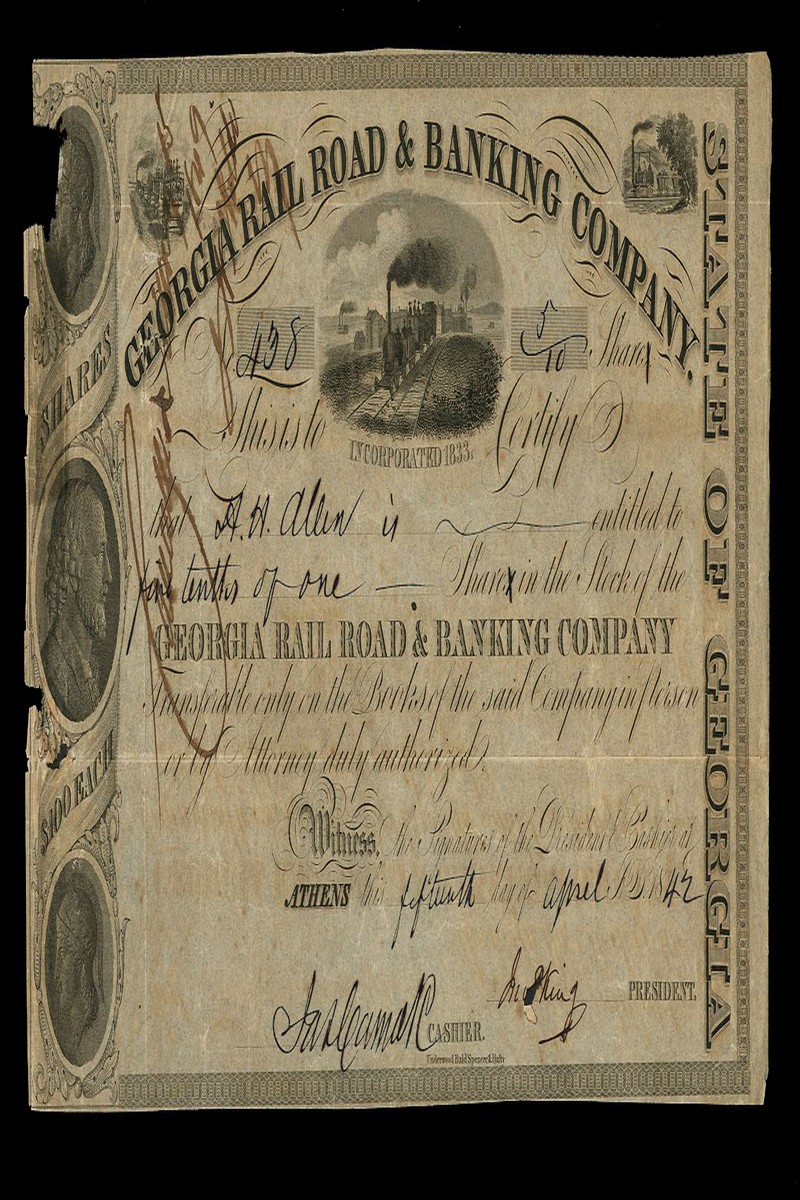 GEORGIA RAIL ROAD & BANKING COMPANY.
STATE OF GEORGIA
SHARES
$100 EACH
No 438
5/10 Share
This is to Certify
INCORPORATED 1833.
that A. H. Allen is entitled to
five tenths of one Share in the Stock of the
GEORGIA RAIL ROAD & BANKING COMPANY
Transferable only on the Books of the said Company in person
or by Attorney duly authorized.
Witness, the Signatures of the President & Cashier at
ATHENS this fifteenth day of april A.D. 1842
Jno P King PRESIDENT.
Jas Camak CASHIER.
Underwood Bald Spencer & Hufty